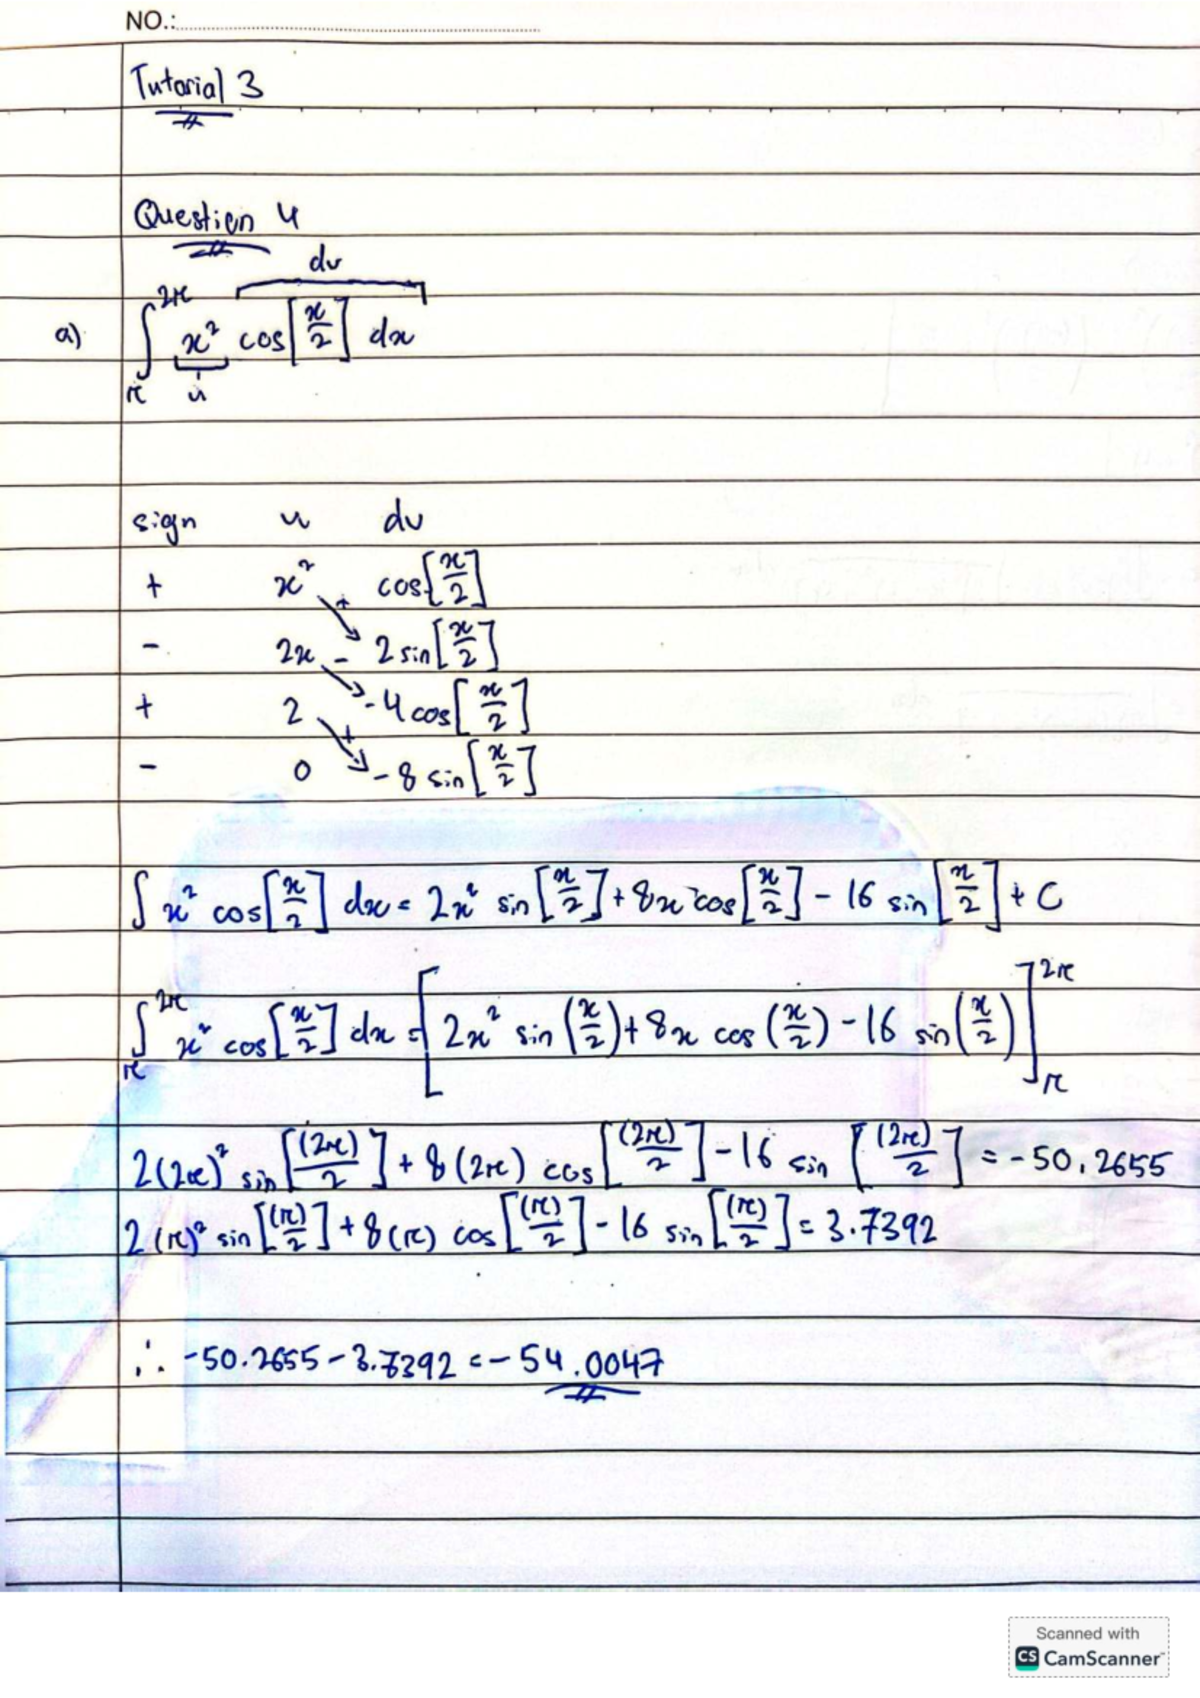 NO.:
Tutorial 3
Question 4
dv
a) ∫_π^2π x² cos[x/2] dx
u
sign u dv
+ x² + cos[x/2]
- 2x - 2 sin[x/2]
+ 2 + -4 cos[x/2]
- 0 -8 sin[x/2]
∫ x² cos[x/2] dx = 2x² sin[x/2] + 8x cos[x/2] - 16 sin[x/2] + C
∫_π^2π x² cos[x/2] dx = [2x² sin(x/2) + 8x cos(x/2) - 16 sin(x/2)]_π^2π
2(2π)² sin[(2π)/2] + 8(2π) cos[(2π)/2] - 16 sin[(2π)/2] = -50.2655
2(π)² sin[(π)/2] + 8(π) cos[(π)/2] - 16 sin[(π)/2] = 3.7392
∴ -50.2655 - 3.7392 = -54.0047
Scanned with
CS CamScanner